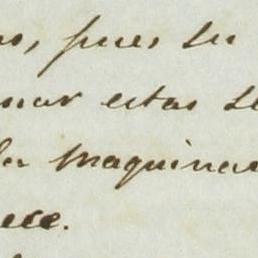 os, pues su
nar estas se
la maquinar
ece.